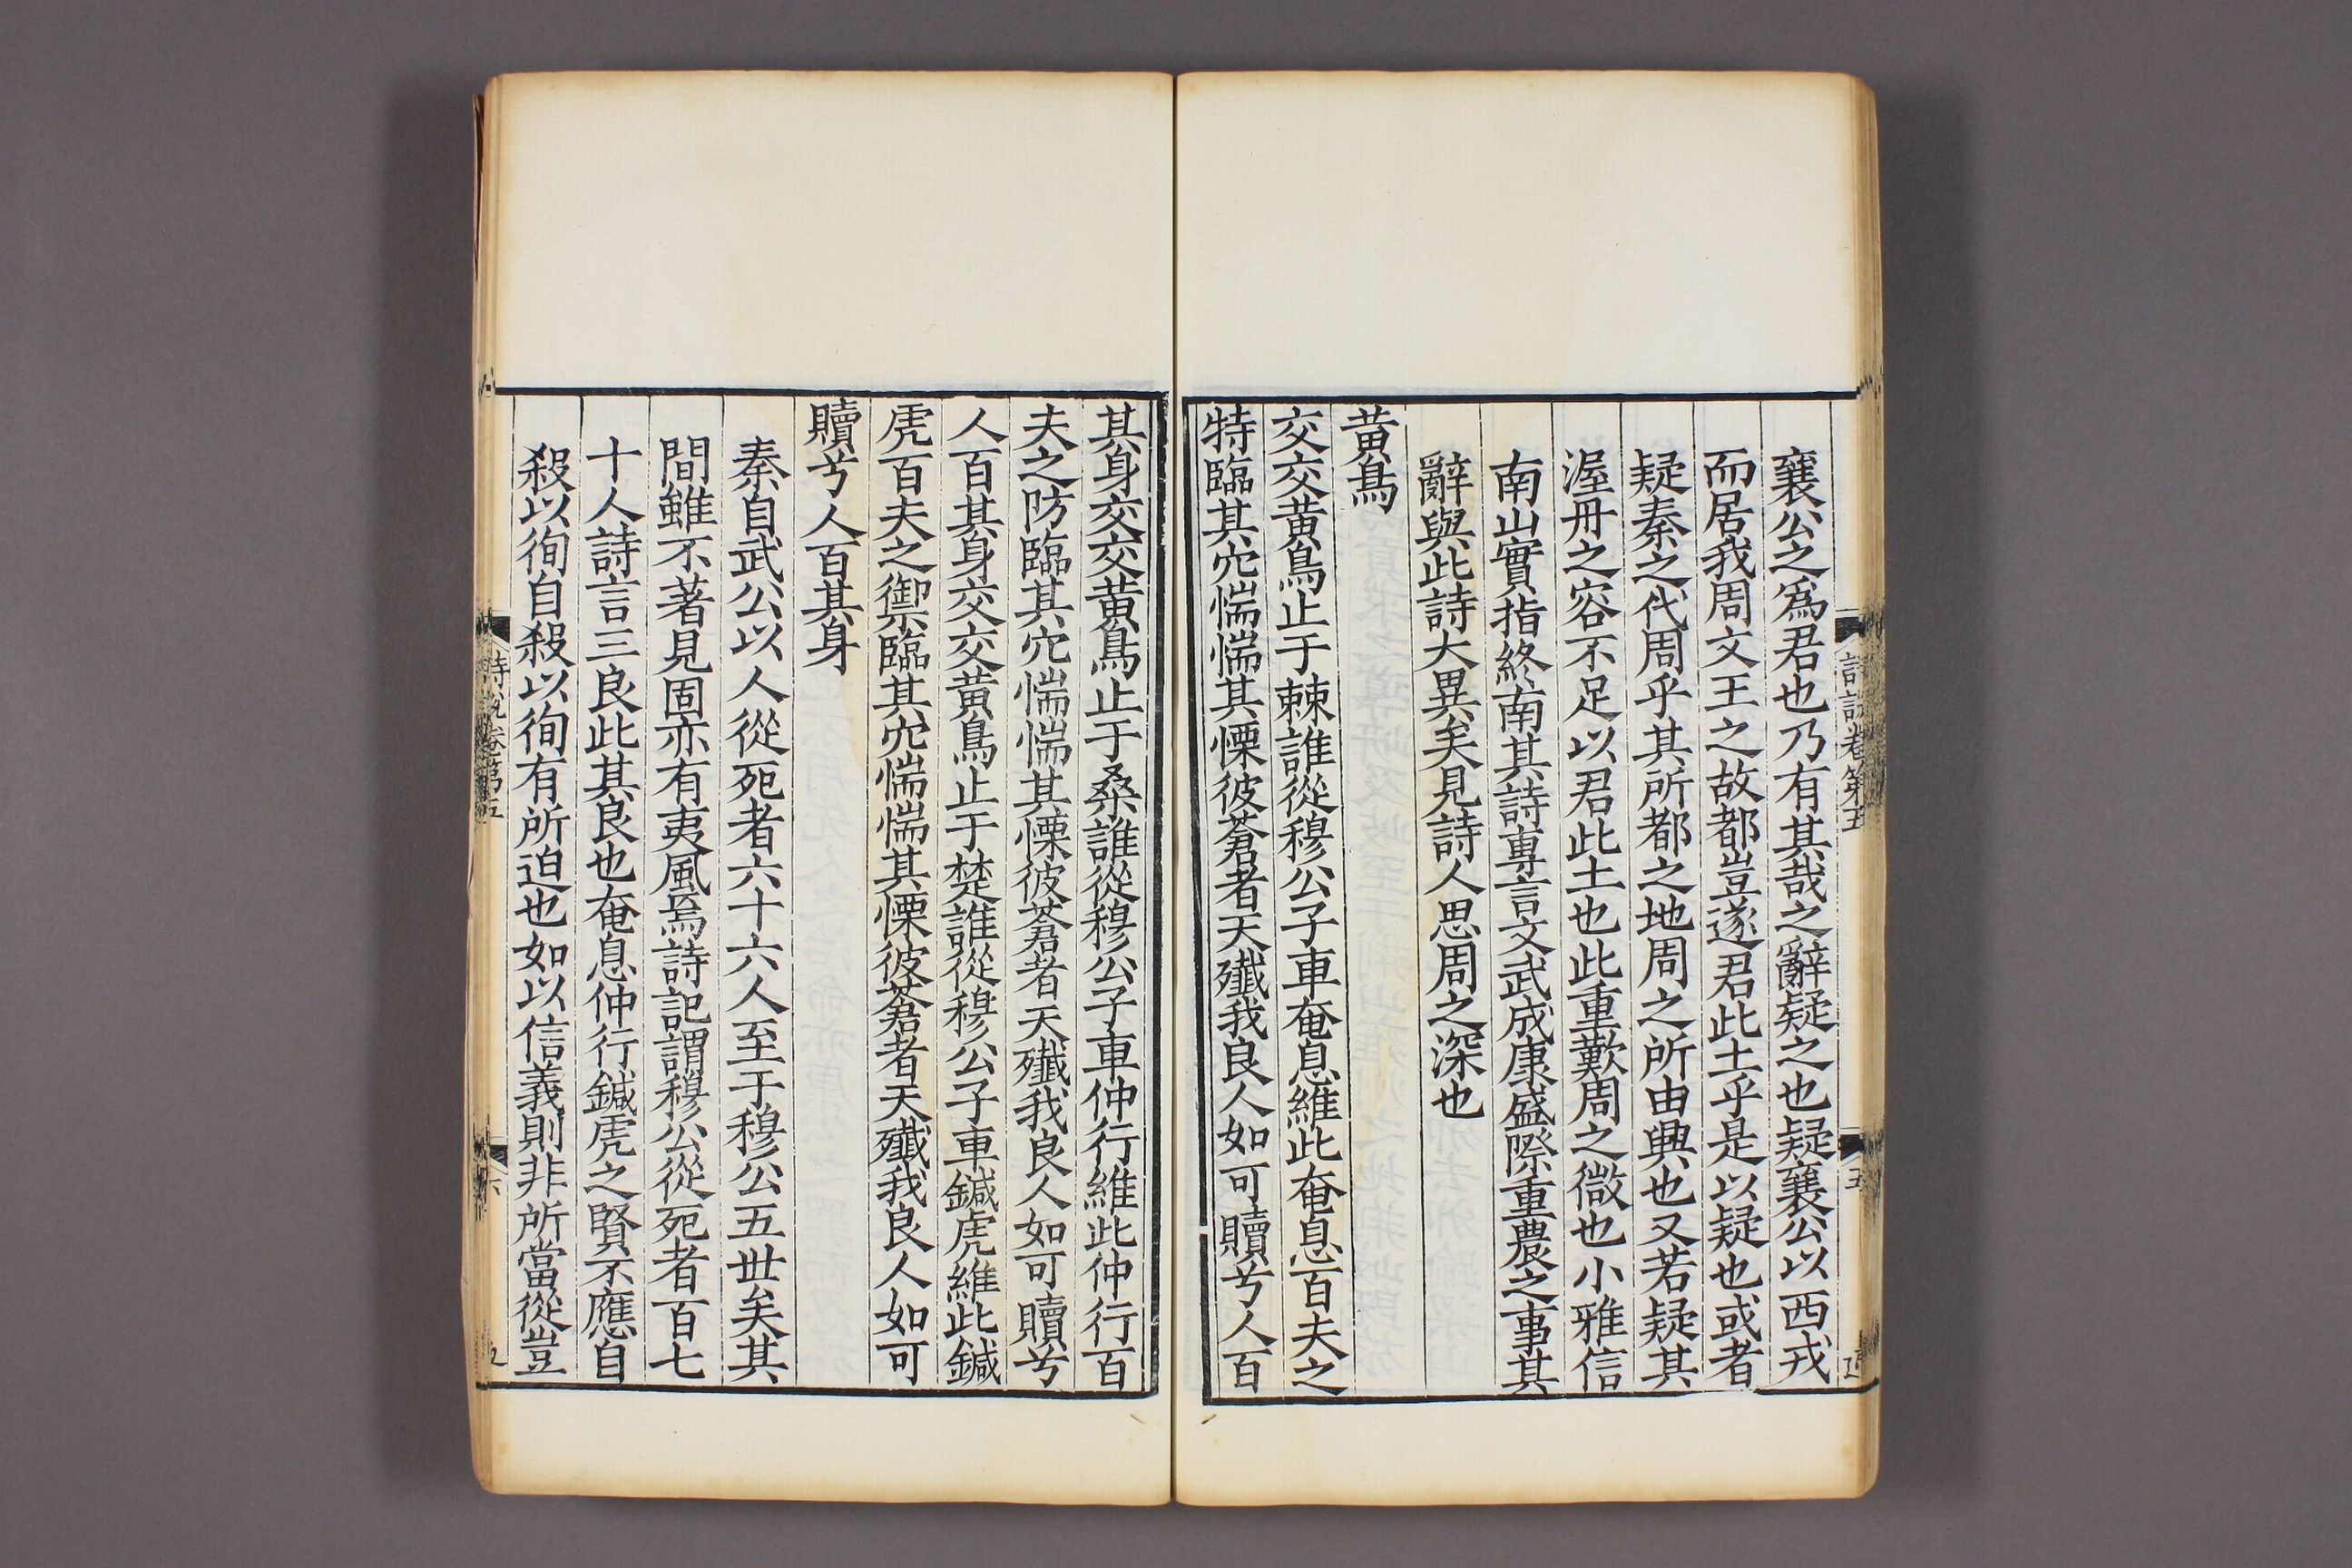 襄公之爲君也乃有其哉之辭疑之也疑襄公以西戎
而居我周文王之故都豈遂君此土乎是以疑也或者
疑秦之代周乎其所都之地周之所由興也又若疑其
渥丹之容不足以君此土也此重歎周之微也小雅信
南山實指終南其詩專言文武成康盛際重農之事其
辭與此詩大異矣見詩人思周之深也
黄鳥
交交黄鳥止于棘誰從穆公子車奄息維此奄息百夫之
特臨其穴惴惴其慄彼蒼者天殲我良人如可贖兮人百
其身交交黄鳥止于桑誰從穆公子車仲行維此仲行百
夫之防臨其穴惴惴其慄彼蒼者天殲我良人如可贖兮
人百其身交交黄鳥止于楚誰從穆公子車鍼虎維此鍼
虎百夫之禦臨其穴惴惴其慄彼蒼者天殲我良人如可
贖兮人百其身
秦自武公以人從死者六十六人至于穆公五世矣其
間雖不著見固亦有夷風焉詩記謂穆公從死者百七
十人詩言三良此其良也奄息仲行鍼虎之賢不應自
殺以徇自殺以徇有所迫也如以信義則非所當從豈
詩説卷第五
六
詩説卷第五
五